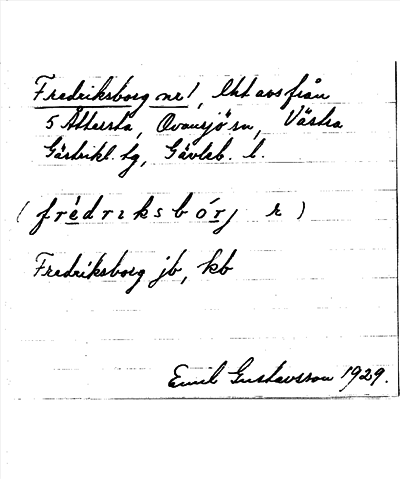 Fredriksborg nr 1, lht avs från
5 Åttersta, Ovansjö sn, Västra
Gästrikl. tg, Gävleb. l.
(frédriksbórj r)
Fredriksborg jb, kb
Emil Gustavsson 1929.